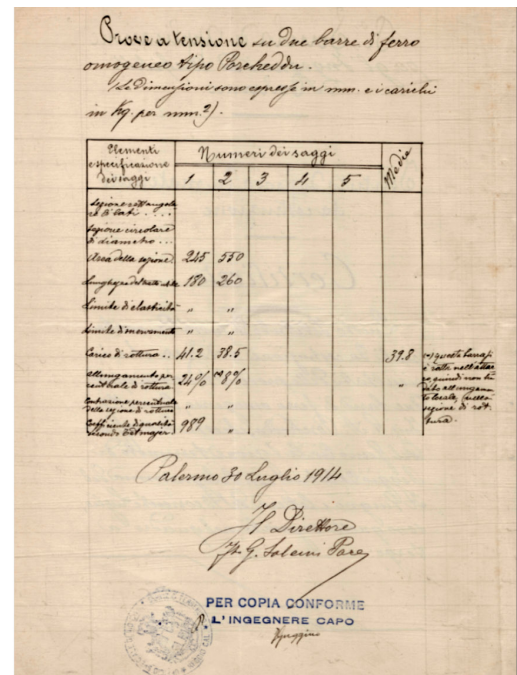 Prove a tensione su due barre di ferro
omogeneo tipo Porcheddu.
(Le dimensioni sono espresse in mm. e i carichi
in Kg. per mm.²).
Elementi
e specificazione
dei saggi
Numeri dei saggi
Media
1 2 3 4 5
Sezione rettangola
re di lati . . .
Sezione circolare
di diametro . . .
Area della sezione 245 550
Lunghezza del tratto utile 180 260
Limite di elasticità " "
Limite di snervamento " "
Carico di rottura .. 41.2 38.5 39.8
Allungamento per
centuale di rottura 24% (*) 8% "
Contrazione percentuale
della sezione di rottura " "
Coefficiente di qualità
secondo Tetmajer 989 "
(*) questa barra si
è rotta nell'attac
co, quindi non ha
allungamen
to locale, (nella
sezione di rot
tura.
Palermo 30 Luglio 1914
Il Direttore
PER COPIA CONFORME
L'INGEGNERE CAPO